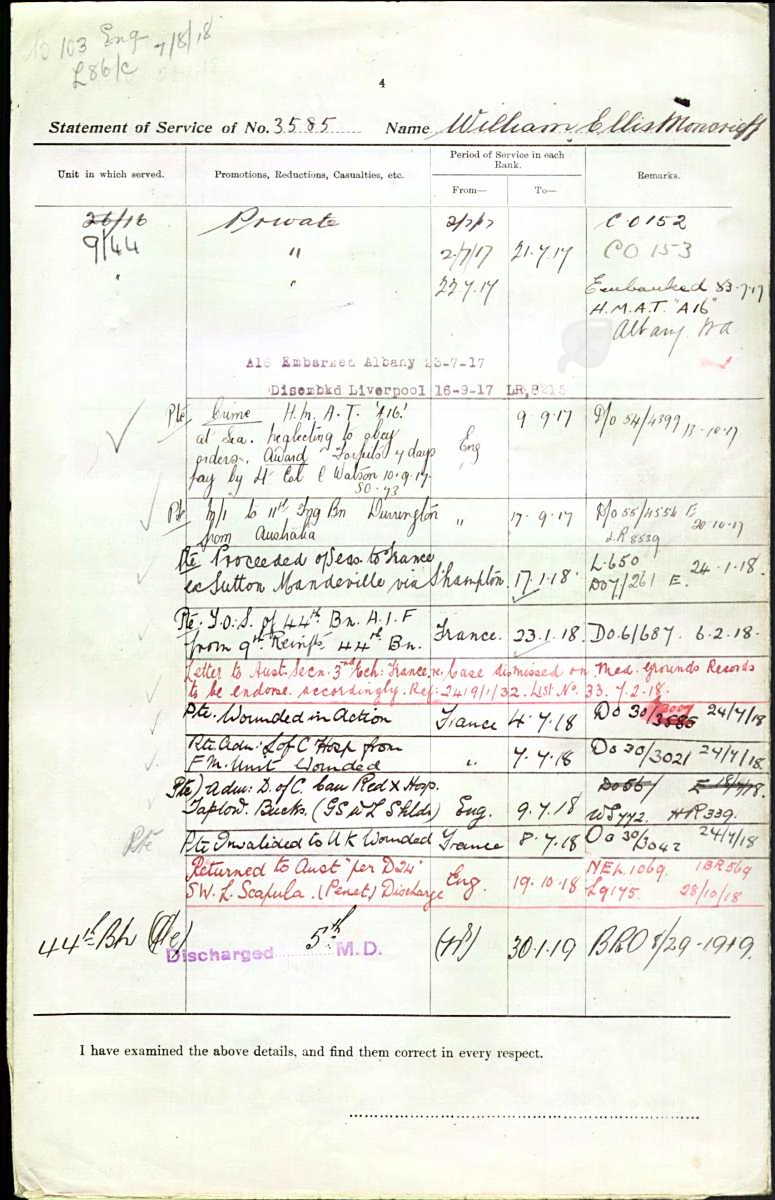 No 103 Eng 7/8/18
L86/c
4
Statement of Service of No. 3585 Name William Ellis Moncrieff
Unit in which served.
Promotions, Reductions, Casualties, etc.
Period of Service in each Rank.
From—
To—
Remarks.
26/16 Private 2/7/17 CO152
9/44 " 2/7/17 21.7.17 CO 153
" " 22.7.17 Embarked 23.7.17
H.M.A.T. "A16"
Albany. WA
A16 Embarked Albany 23-7-17
Disembkd Liverpool 16-9-17 LR,8215
Pte Crime H.M.A.T. "A16." 9.9.17 D/o 54/4399 13.10.17
at Sea. Neglecting to obey Eng
orders. Award Forfeits 4 days "
pay by Lt Col C Watson 10.9.17.
SO.43
Pte M/I to 11th Trg Bn Durrington " 17.9.17 D/o 55/4554 E 20.10.17
from Australia LR 8539
Pte Proceeded o/Seas to France L.650 24.1.18.
ex Sutton Mandeville via S'hampton. 17.1.18. DO7/261 E.
Pte. T.O.S. of 44th Bn. A.I.F France. 23.1.18. Do.6/687. 6.2.18.
from 9th Reinfts 44th Bn.
Letter to Aust. Secn. 3rd Ech. France. re. Case dismissed on Med. Grounds Records
to be endorse. accordingly. Ref: 2419/1/32. List No. 33. 7.2.18.
Pte. Wounded in Action France 4.7.18 Do 30/3585 3007 24/7/18
Pte Adm: L of C Hosp from " 7.7.18 Do 30/3021 24/7/18
F.M. Unit Wounded
Pte) Adm: D. of C. Can Red X Hosp. Do 56/ E 18/7/18.
Taplow. Bucks. (GSW L Shldr) Eng. 9.7.18 WS772. HR339.
Pte Pte Invalided to UK Wounded. France 8.7.18 Do 30/3042 24/7/18
Returned to Aust "per D24" Eng. 19.10.18 NEL1069. 1BR569
SW. L. Scapula. (Penet) Discharge L9175. 28/10/18
44th Bn (Pte) Discharged 5th M.D. 30.1.19 BRO 8/29-1919.
I have examined the above details, and find them correct in every respect.